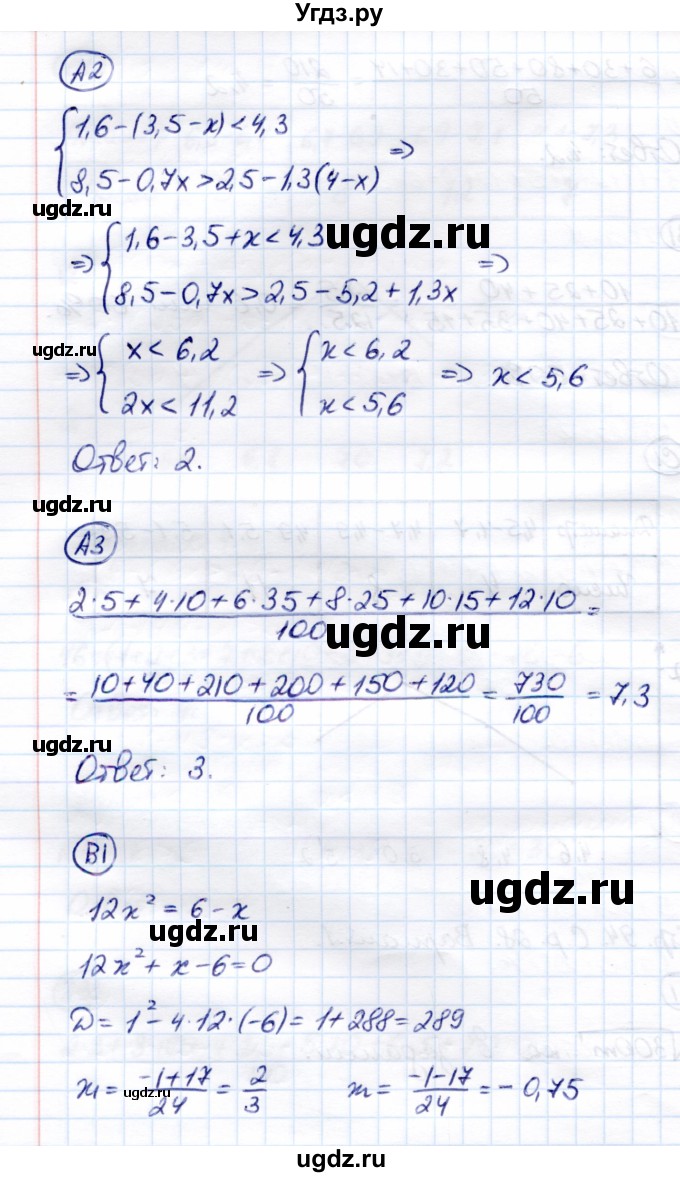 Угдз.ру
А2
{ 1,6-(3,5-x)<4,3
{ 8,5-0,7x>2,5-1,3(4-x) =>
ugdz.ru
=> { 1,6-3,5+x<4,3
ugdz.ru
{ 8,5-0,7x>2,5-5,2+1,3x =>
ugdz.ru
=> { x<6,2 => { x<6,2 => x<5,6
{ 2x<11,2 { x<5,6
Ответ: 2.
ugdz.ru
А3
2·5+4·10+6·35+8·25+10·15+12·10 / 100 =
ugdz.ru
= 10+40+210+200+150+120 / 100 = 730/100 = 7,3
ugdz.ru
Ответ: 3.
В1
ugdz.ru
12x² = 6-x
ugdz.ru
12x²+x-6=0
D = 1²-4·12·(-6) = 1+288 = 289
x₁ = -1+17/24 = 2/3 x₂ = -1-17/24 = -0,75
ugdz.ru
ugdz.ru